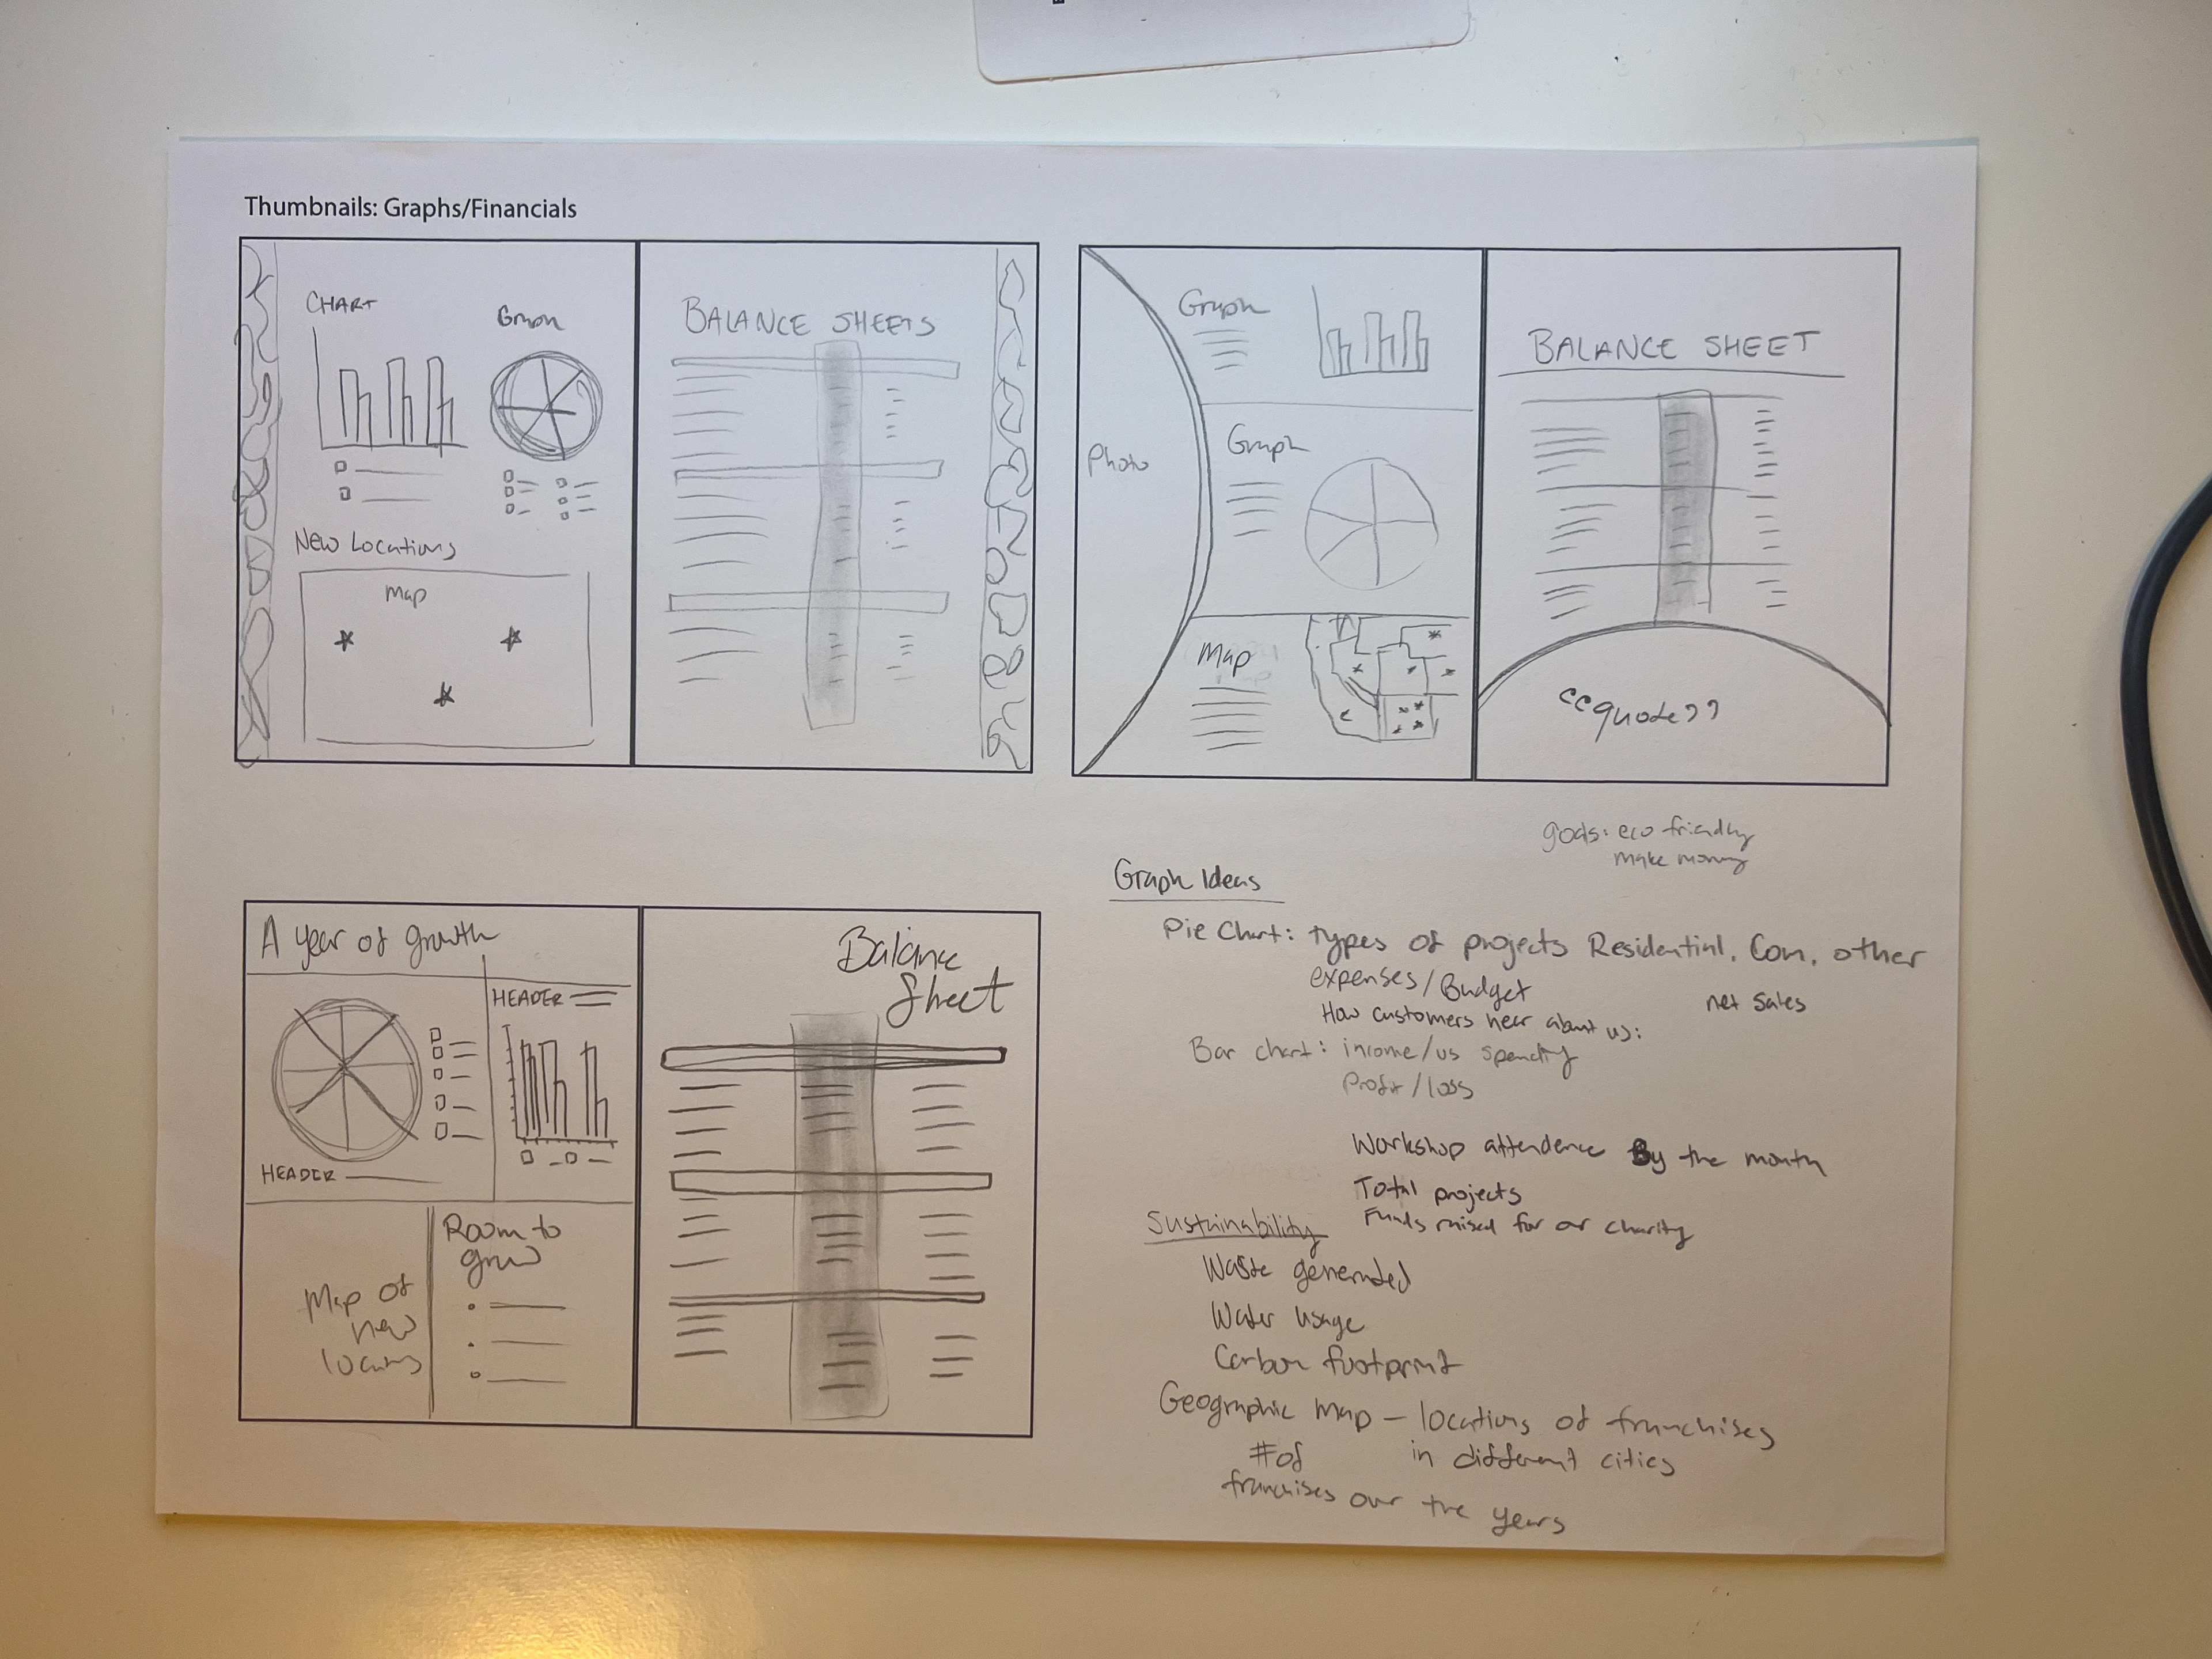 Thumbnails: Graphs/Financials
CHART
Graph
New Locations
Map
BALANCE SHEETS
Photo
Graph
Graph
Map
BALANCE SHEET
"quote"
goals: eco friendly
make money
A year of growth
HEADER
HEADER
Map of
new
locations
Room to
grow
Balance
Sheet
Graph Ideas
Pie Chart: types of projects Residential, Com, other
expenses/Budget
net sales
How customers hear about us:
Bar chart: income/vs spending
Profit/loss
Workshop attendence By the month
Total projects
Funds raised for or charity
Sustainability
Waste generated
Water usage
Carbon footprint
Geographic map – locations of franchises
in different cities
# of
franchises over the years